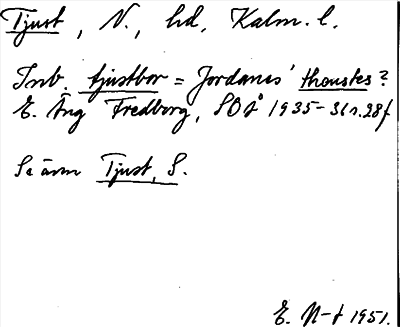 Tjust, N., hd, Kalm. l.
Inb. tjustbor = Jordanes' theustes?
E. Äng Fredborg, SOÅ 1935-36 s. 28f
Se även Tjust, S.
E. N-t 1951.